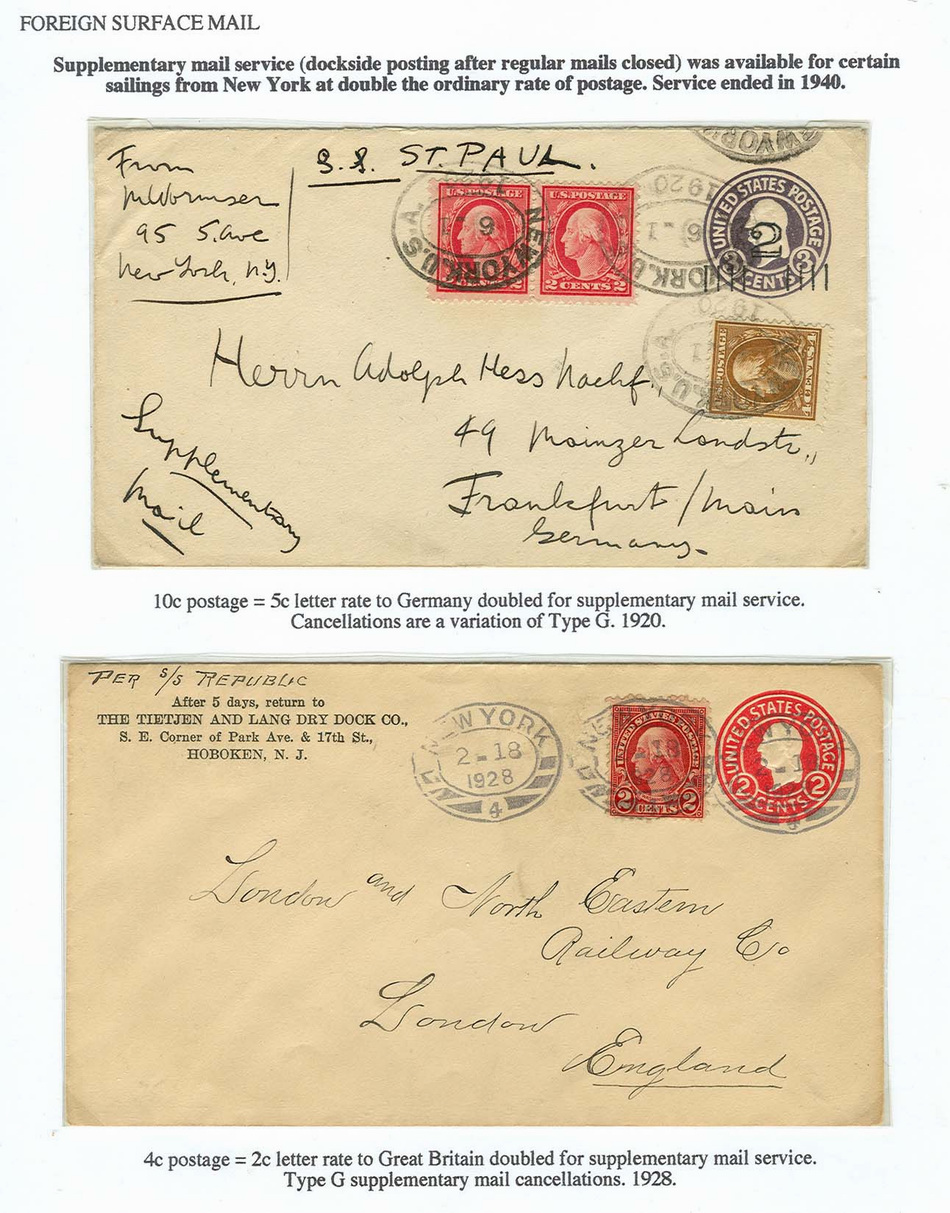 FOREIGN SURFACE MAIL
Supplementary mail service (dockside posting after regular mails closed) was available for certain
sailings from New York at double the ordinary rate of postage. Service ended in 1940.
From
M Wormser
95 5. Ave
New York, N.Y.
S.S. ST. PAUL.
U.S. POSTAGE
2 CENTS 2
U.S. POSTAGE
2 CENTS 2
NEW YORK, U.S.A.
1920
UNITED STATES POSTAGE
3 CENTS 3
2
U.S. POSTAGE
4 CENTS 4
Herrn Adolph Hess Nachf.,
49 Mainzer Landstr.,
Frankfurt / Main
Germany.
Supplementary
Mail
10c postage = 5c letter rate to Germany doubled for supplementary mail service.
Cancellations are a variation of Type G. 1920.
PER S/S REPUBLIC
After 5 days, return to
THE TIETJEN AND LANG DRY DOCK CO.,
S. E. Corner of Park Ave. & 17th St.,
HOBOKEN, N. J.
NEW YORK
2-18
1928
4
UNITED STATES POSTAGE
2 CENTS 2
UNITED STATES POSTAGE
2 CENTS 2
London and North Eastern
Railway Co
London
England
4c postage = 2c letter rate to Great Britain doubled for supplementary mail service.
Type G supplementary mail cancellations. 1928.